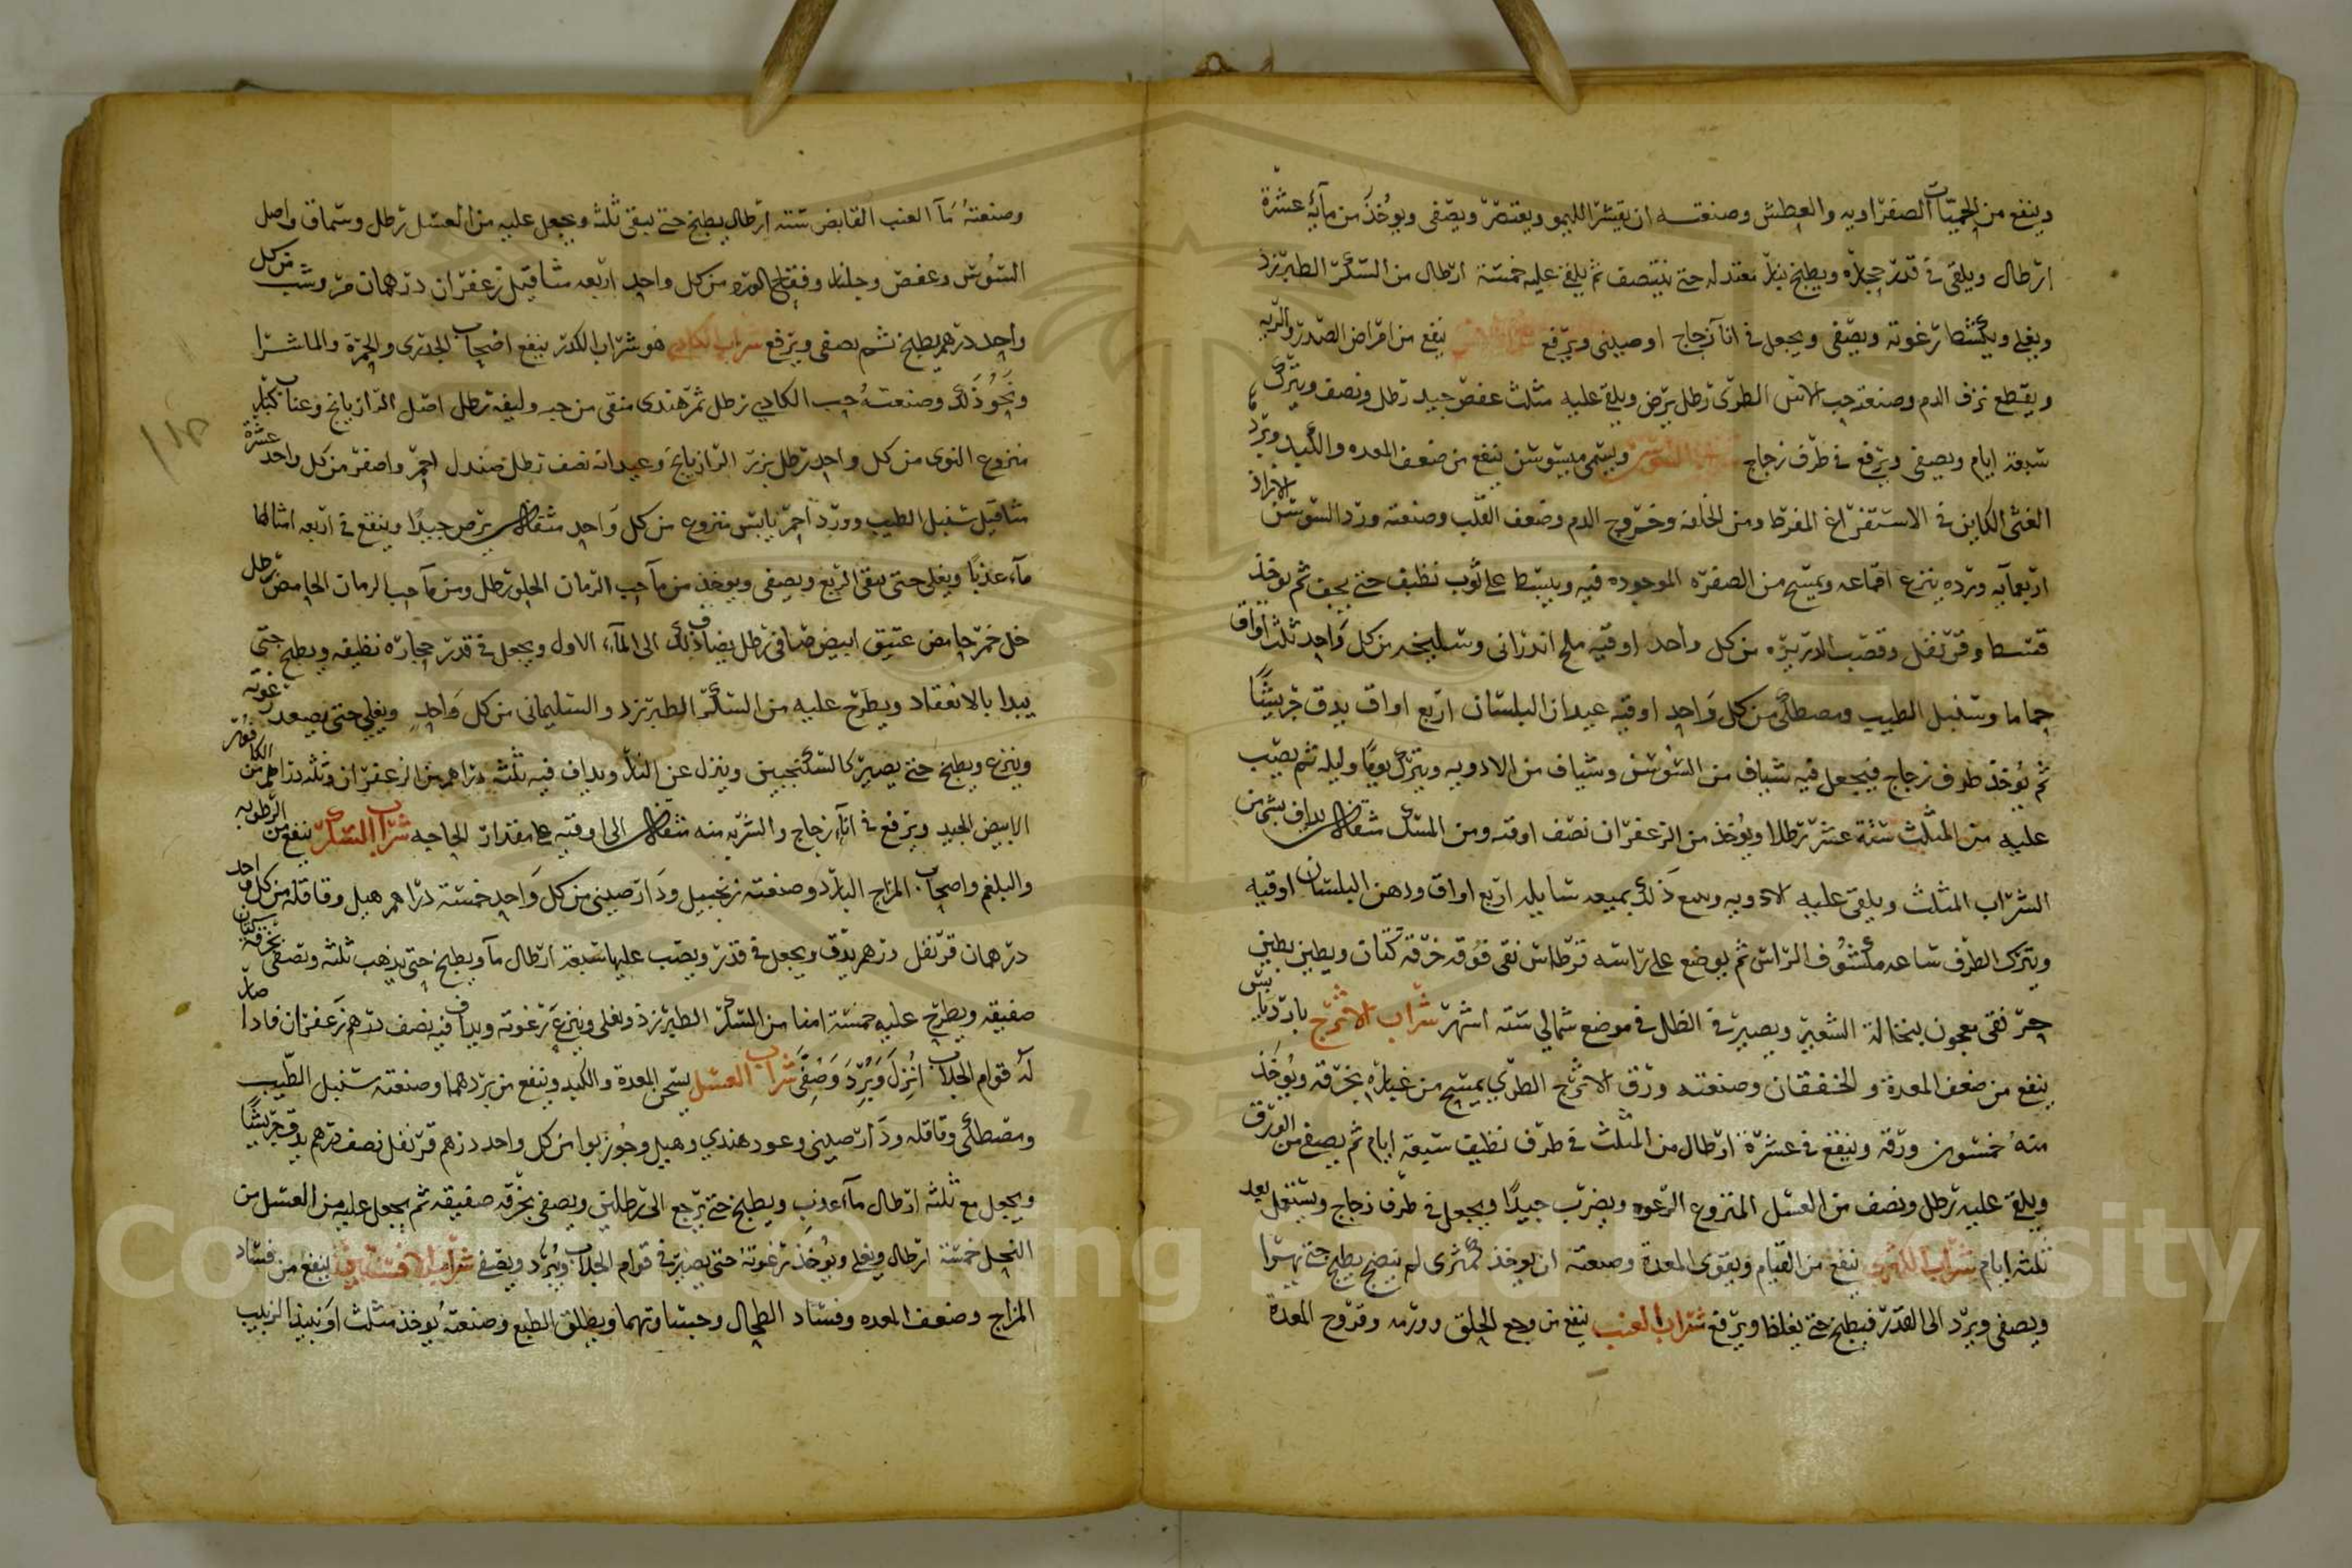 وينفع من الحميات الصفراويه والعطش وصنعته ان يقشر الليمو ويعتصر ويصفى ويوخذ من مآئه عشرة
ارطال ويلقى في قدر حجاره ويطبخ بنار معتدله حتى ينتصف ثم يلقى عليه خمسة ارطال من السكر الطبرزد
ويغلى ويكشط رغوته ويصفى ويجعل في اناء زجاج او صينى ويرفع شراب الاس ينفع من امراض الصدر والريه
ويقطع نزف الدم وصنعته حب الاس الطرى رطل يرض ويلقى عليه مثلث عفص جيد رطل ونصف ويترك
سبعة ايام ويصفى ويرفع في ظرف زجاج شراب السوسن ويسمى ميسوسن ينفع من ضعف المعده والكبد وبرد
الغشى الكاين في الاستفراغ المفرط ومن الخلفه وخروج الدم وضعف القلب وصنعته ورد السوسن الازاد
اربعمايه ورده ينزع اقماعه ويمسح من الصفره الموجوده فيه ويبسط على ثوب نظيف حتى يجف ثم يوخذ
قسط وقرنفل وقصب الدريره من كل واحد اوقيه ملح اندرانى وسليخه من كل واحد ثلث اواق
حماما وسنبل الطيب ومصطكى من كل واحد اوقيه عيدان البلسان اربع اواق يدق جريشًا
ثم يوخذ ظرف زجاج فيجعل فيه شياف من السوسن وشياف من الادويه ويترك يومًا وليله ثم يصب
عليه من المثلث ستة عشر رطلا ويوخذ من الزعفران نصف اوقيه ومن المسك مثقال يداف بشى من
الشراب المثلث ويلقى عليه الادويه ومع ذلك بميعه سايله اربع اواق ودهن البلسان اوقيه
ويترك الظرف ساعه مكشوف الراس ثم يوضع على راسه قرطاس نقى فوقه خرقة كتان ويطين بطين
حر نقى معجون بنخالة الشعير ويصير في الظل في موضع شمالي سته اشهر شراب الاترج بارد يابس
ينفع من ضعف المعدة والخفقان وصنعته ورق الاترج الطري يمسح من غباره بخرقه ويوخذ
منه خمسون ورقه وينقع في عشرة ارطال من المثلث في ظرف نظيف سبعة ايام ثم يصفى من الورق
ويلقى عليه رطل ونصف من العسل المنزوع الرغوه ويضرب جيدًا ويجعل في ظرف زجاج ويستعمل بعد
ثلثه ايام شراب الكمثرى ينفع من القيام ويقوى المعدة وصنعته ان يوخذ كمثرى لم ينضج يطبخ حتى يتهرا
ويصفى ويرد الى القدر فيطبخ حتى يغلظ ويرفع شراب العنب ينفع من وجع الحلق وورمه وقروح المعدة
وصنعته مآ العنب القابض سته ارطال يطبخ حتى يبقى ثلثه ويجعل عليه من العسل رطل وسماق واصل
السوس وعفص وجلنار وفقاح الورد من كل واحد اربعه مثاقيل زعفران درهمان مر وشب من كل
واحد درهم يطبخ ثم يصفى ويرفع شراب الكادي هو شراب الكدر ينفع اصحاب الجدرى والحمرة والماشرا
ونحو ذلك وصنعته حب الكادي رطل تمر هندى منقى من حبه وليفه رطل اصل الرازيانج وعناب كبار
منزوع النوى من كل واحد رطل بزر الرازيانج وعيدانه نصف رطل صندل احمر واصفر من كل واحد عشرة
مثاقيل سنبل الطيب وورد احمر يابس منزوع من كل واحد مثقال يرض جيدًا وينقع في اربعه امثالها
مآء عذبًا ويغلى حتى يبقى الربع ويصفى ويوخذ من مآ حب الرمان الحلو رطل ومن مآ حب الرمان الحامض رطل
خل خمر حامض عتيق ابيض صافى رطل يضاف ذلك الى المآء الاول ويجعل في قدر حجاره نظيفه ويطبخ حتى
يبدا بالانعقاد ويطرح عليه من السكر الطبرزد والسليمانى من كل واحد ويغلى حتى يصعد رغوته
وينزع ويطبخ حتى يصير كالسكنجبين وينزل عن النار ويداف فيه ثلثه دراهم من الزعفران وثلثه دراهم من الكافور
الابيض الجيد ويرفع في انآء زجاج والشربه منه مثقال الى اوقيه على مقدار الحاجه شراب السكر ينفع من الرطوبه
والبلغم واصحاب المزاج البارد وصنعته زنجبيل ودارصينى من كل واحد خمسة دراهم هيل وقاقله من كل واحد
درهمان قرنفل درهم يدق ويجعل في قدر ويصب عليها سبعة ارطال مآ ويطبخ حتى يذهب ثلثه وتصفى بخرقة كتان
صفيقه ويطرح عليه خمسة امنا من السكر الطبرزد ويغلى وينزع رغوته ويداف فيه نصف درهم زعفران فاذا صار
له قوام الجلاب انزل وبرد وصفى شراب العسل يسخن المعدة والكبد وينفع من بردهما وصنعته سنبل الطيب
ومصطكى وقاقله ودارصينى وعود هندي وهيل وجوز بوا من كل واحد درهم قرنفل نصف درهم يدق جريشًا
ويجعل مع ثلثه ارطال مآء عذب ويطبخ حتى يرجع الى رطلين ويصفى بخرقه صفيقه ثم يجعل عليه من العسل من
النحل خمسة ارطال ويغلى ويوخذ رغوته حتى يصير في قوام الجلاب ويبرد ويصفى شراب الافسنتين ينفع من فساد
المزاج وضعف المعده وفساد الطحال وجساوتهما ويطلق الطبع وصنعته يوخذ مثلث او نبيذ الزبيب